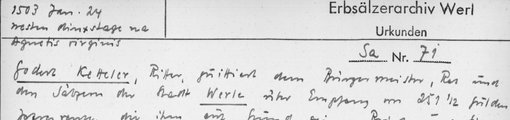 1503 Jan. 24
Erbsälzerarchiv Werl
nesten dinxstage na
Agnetis virginis
Urkunden
Sa Nr. 71
Godert Ketteler, Ritter, quittiert dem Bürgermeister, Rat und
den Sälzern der Stadt Werle über Empfang von 251 1/2 gulden